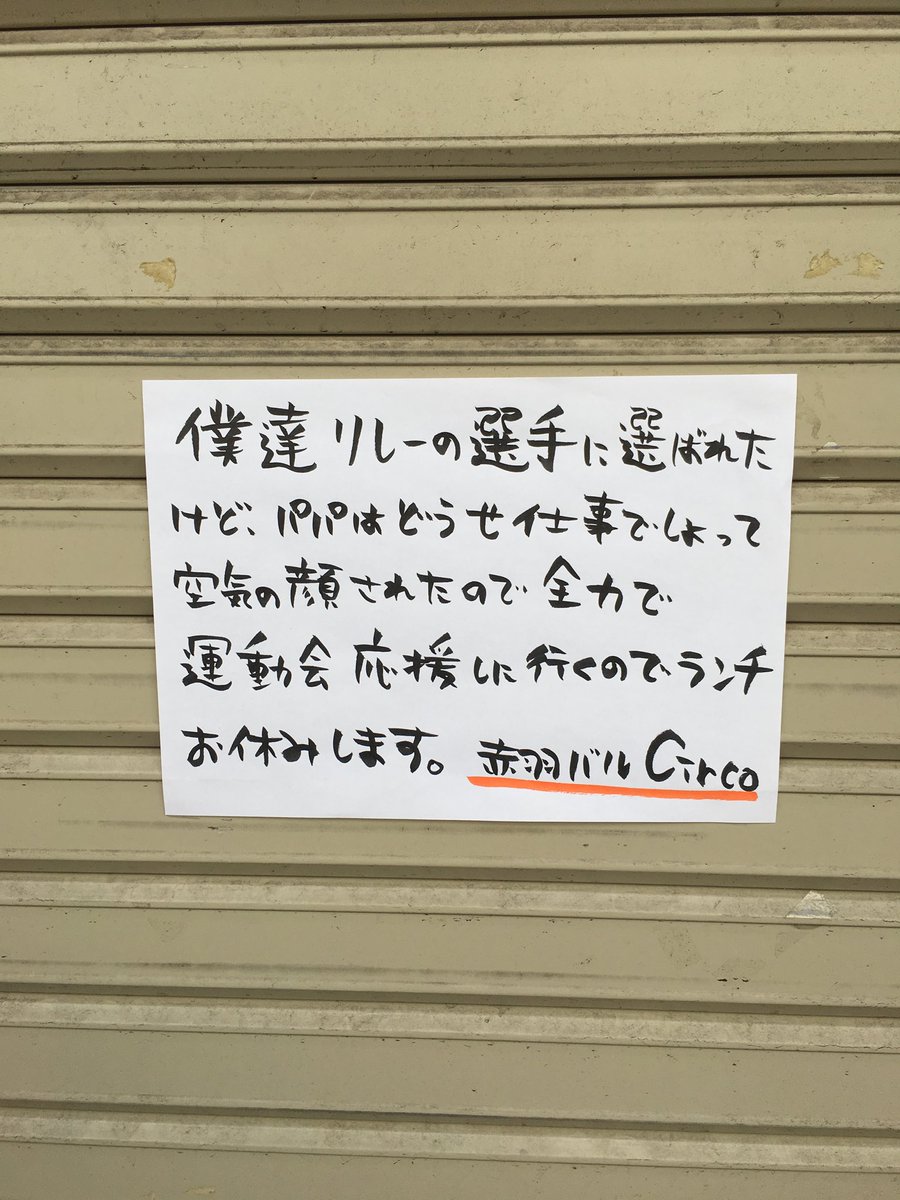 僕達リレーの選手に選ばれた
けど、パパはどうせ仕事でしょって
空気の顔されたので全力で
運動会応援しに行くのでランチ
お休みします。赤羽バル Circo